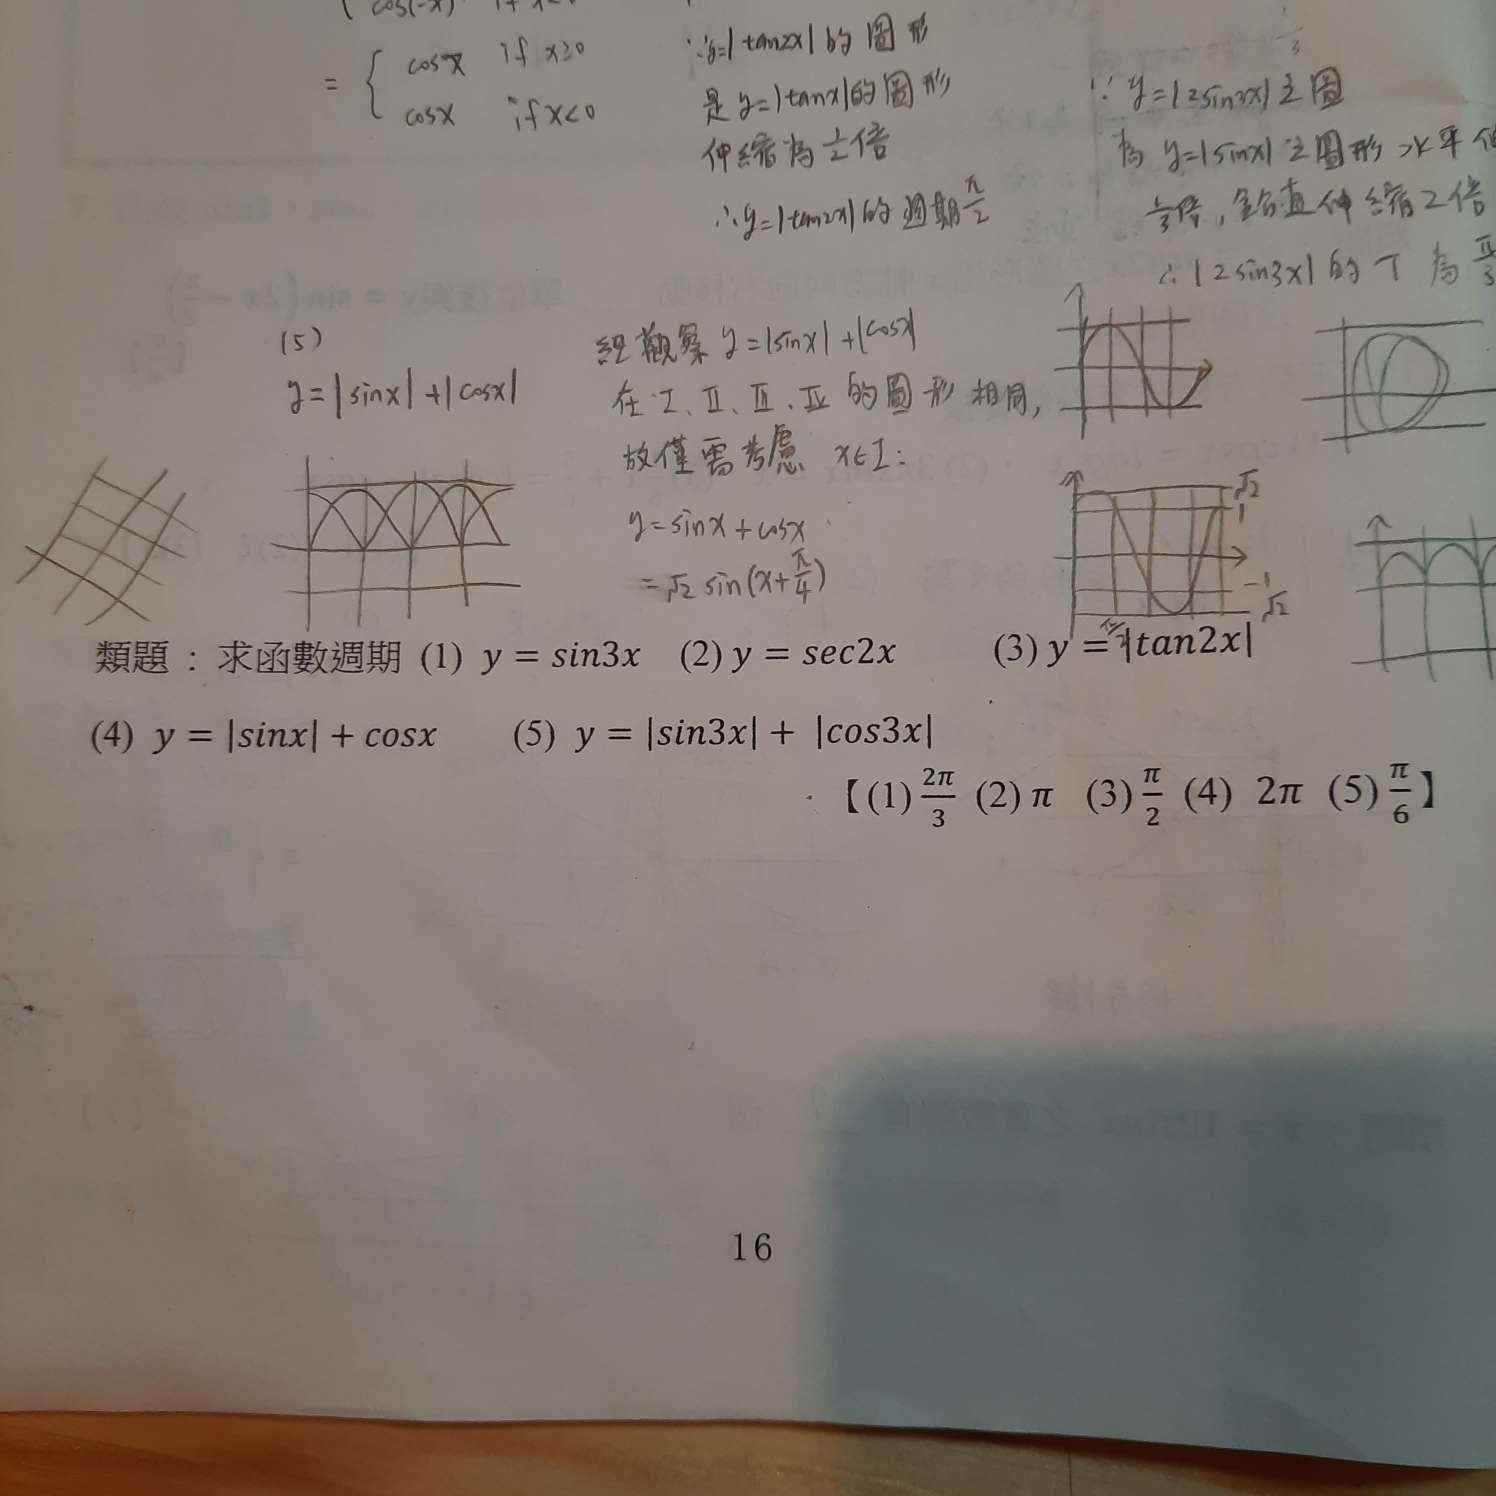 cos(-x) if x<0
= { cosx if x≥0
cosx if x<0
∵y=|tan2x|的圖形
是y=|tanx|的圖形
伸縮為1/2倍
∴y=|tan2x|的週期π/2
∵ y=|2sin3x|之圖
為 y=|sinx|之圖形水平伸
1/3倍,鉛直伸縮2倍
∴|2sin3x|的T為π/3
(5)
y=|sinx|+|cosx|
經觀察 y=|sinx|+|cosx|
在I、II、III、IV的圖形相同,
故僅需考慮 x∈I:
y=sinx+cosx
=√2 sin(x+π/4)
√2
1
-1
√2
類題:求函數週期 (1) y = sin3x (2) y = sec2x (3) y = |tan2x|
(4) y = |sinx| + cosx (5) y = |sin3x| + |cos3x|
【(1) 2π/3 (2) π (3) π/2 (4) 2π (5) π/6】
16